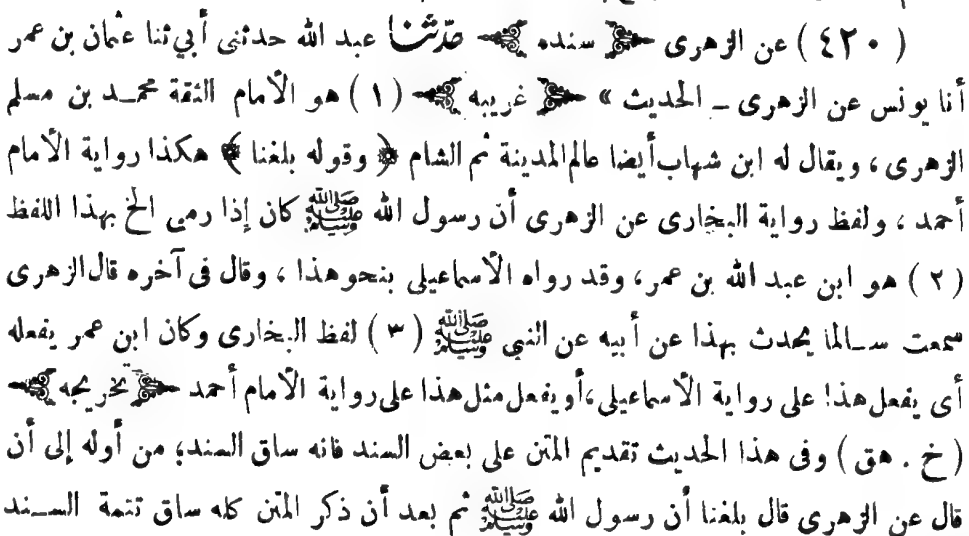 ( ٤٢٠ ) عن الزهرى ﴿ سنده ﴾ حدّثنا عبد الله حدثنى أبي ثنا عثمان بن عمر
أنا يونس عن الزهرى ــ الحديث » ﴿ غريبه ﴾ ( ١ ) هو الأمام الثقة محمـد بن مسلم
الزهرى ، ويقال له ابن شهاب أيضا عالم المدينة ثم الشام ﴿ وقوله بلغنا ﴾ هكذا رواية الأمام
أحمد ، ولفظ رواية البخارى عن الزهرى أن رسول الله ﷺ كان إذا رمى الخ بهذا اللفظ
( ٢ ) هو ابن عبد الله بن عمر، وقد رواه الأسماعيلى بنحو هذا ، وقال فى آخره قال الزهرى
سمعت سـالما يحدث بهذا عن أبيه عن النبي ﷺ ( ٣ ) لفظ البخارى وكان ابن عمر يفعله
أى يفعل هذا على رواية الأسماعيلى، أو يفعل مثل هذا على رواية الأمام أحمد ﴿ تخريجه ﴾
( خ . هق ) وفى هذا الحديث تقديم المتن على بعض السند فانه ساق السند؛ من أوله إلى أن
قال عن الزهرى قال بلغنا أن رسول الله ﷺ ثم بعد أن ذكر المتن كله ساق تتمة السـند